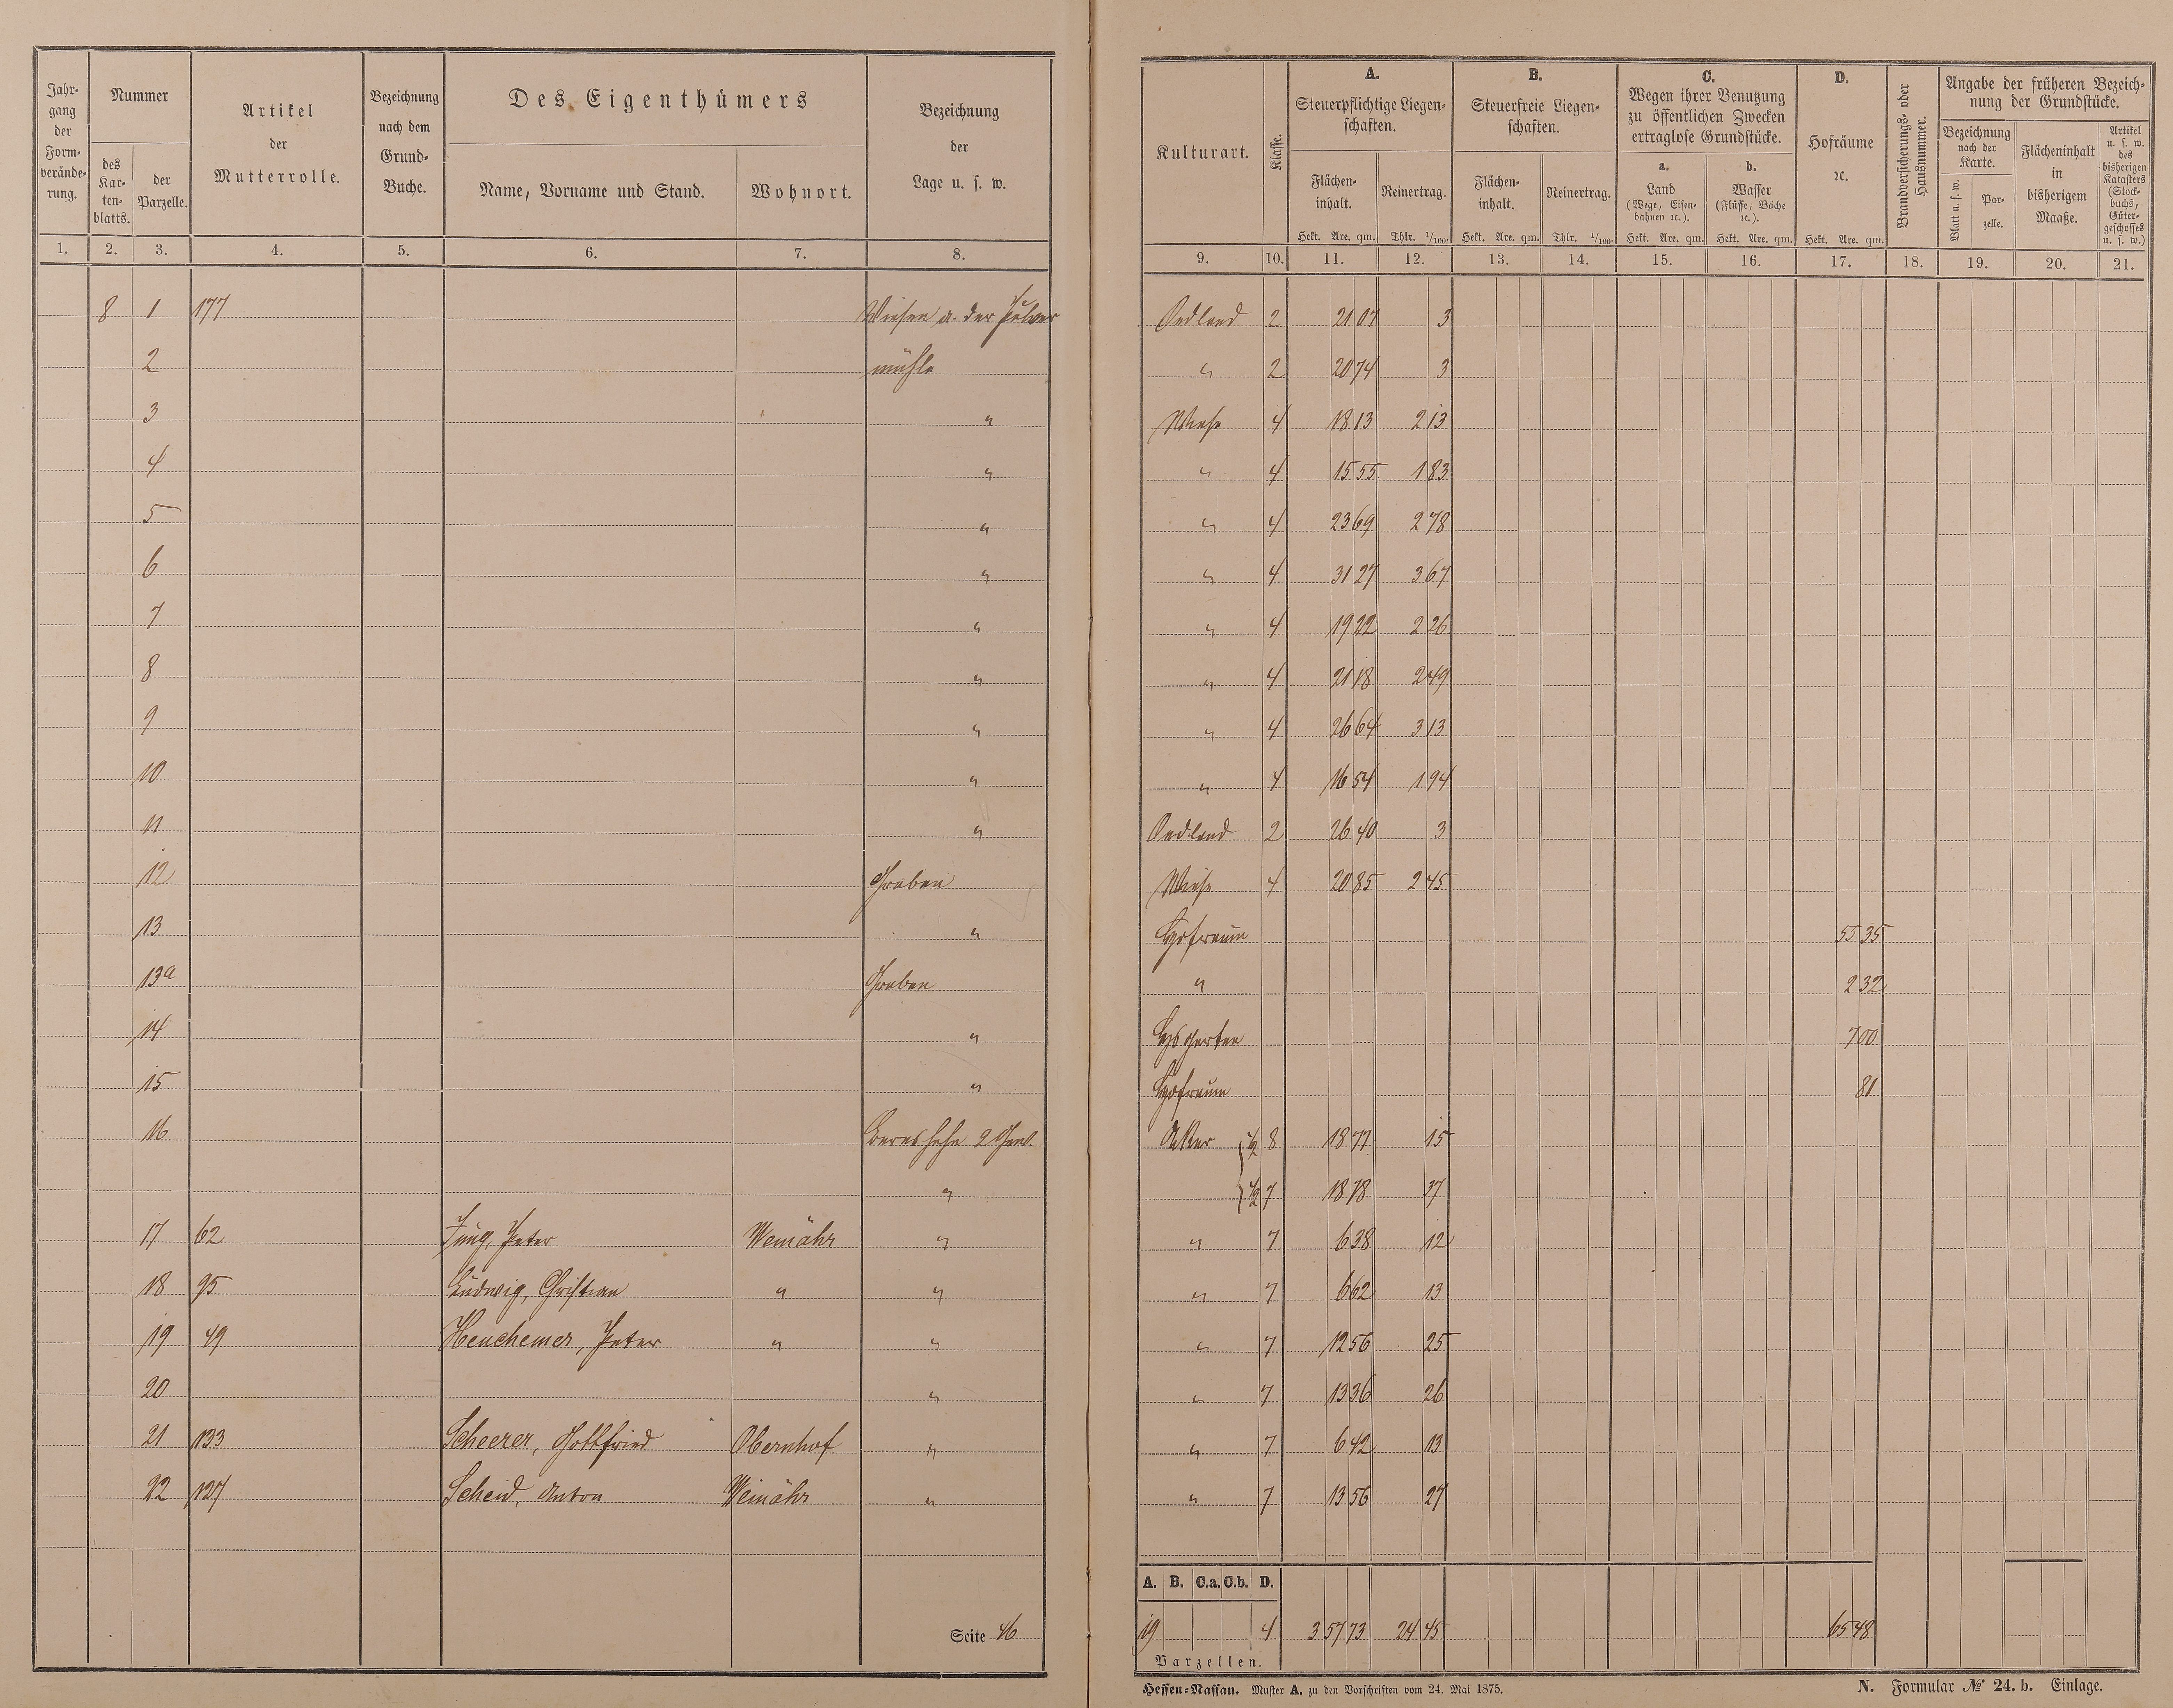 Jahrgang der Formveränderung.
Nummer
des Kartenblatts.
der Parzelle.
Artikel der Mutterrolle.
Bezeichnung nach dem Grund-Buche.
Des Eigenthümers
Name, Vorname und Stand.
Wohnort.
Bezeichnung der Lage u. s. w.
Kulturart.
Klasse.
A. Steuerpflichtige Liegenschaften.
Flächeninhalt. Hekt. Are. qm.
Reinertrag. Thlr. 1/100.
B. Steuerfreie Liegenschaften.
Flächeninhalt. Hekt. Are. qm.
Reinertrag. Thlr. 1/100.
C. Wegen ihrer Benutzung zu öffentlichen Zwecken ertraglose Grundstücke.
a. Land (Wege, Eisenbahnen ꝛc.). Hekt. Are. qm.
b. Wasser (Flüsse, Bäche ꝛc.). Hekt. Are. qm.
D. Hofräume ꝛc. Hekt. Are. qm.
Brandversicherungs- oder Hausnummer.
Angabe der früheren Bezeichnung der Grundstücke.
Bezeichnung nach der Karte.
Blatt u. s. w.
Parzelle.
Flächeninhalt in bisherigem Maaße.
Artikel u. s. w. des bisherigen Katasters (Stockbuchs, Gütergeschosses u. s. w.)
1. 2. 3. 4. 5. 6. 7. 8. 9. 10. 11. 12. 13. 14. 15. 16. 17. 18. 19. 20. 21.
8 1 177 Wiesen a. der Pulver Oedland 2 21 07 3
2 mühle " 2 20 74 3
3 " Wiese 4 18 13 2 13
4 " " 4 15 55 1 83
5 " " 4 23 69 2 78
6 " " 4 31 27 3 67
7 " " 4 19 22 2 26
8 " " 4 21 18 2 49
9 " " 4 26 64 3 13
10 " " 4 16 54 1 94
11 " Oedland 2 26 40 3
12 Graben Wiese 4 20 85 2 45
13 " Hofraum 55 35
13a Graben " 2 32
14 " Hsgarten 7 00
15 " Hofraum 81
16 2 Gew. Acker 1/2 8 18 77 15
" 1/2 7 18 78 37
17 62 Jung, Peter Weinähr " " 7 6 38 12
18 95 Ludwig, Christian " " " 7 6 62 13
19 49 Heuchemer, Peter " " " 7 12 56 25
20 " " 7 13 36 26
21 133 Scheerer, Gottfried Obernhof " " 7 6 42 13
22 127 Scheid, Anton Weinähr " " 7 13 56 27
A. B. C.a. C.b. D.
Seite 46 19 4 3 57 73 24 45 65 48
Parzellen.
Hessen-Nassau. Muster A. zu den Vorschriften vom 24. Mai 1875.
N. Formular № 24. b. Einlage.